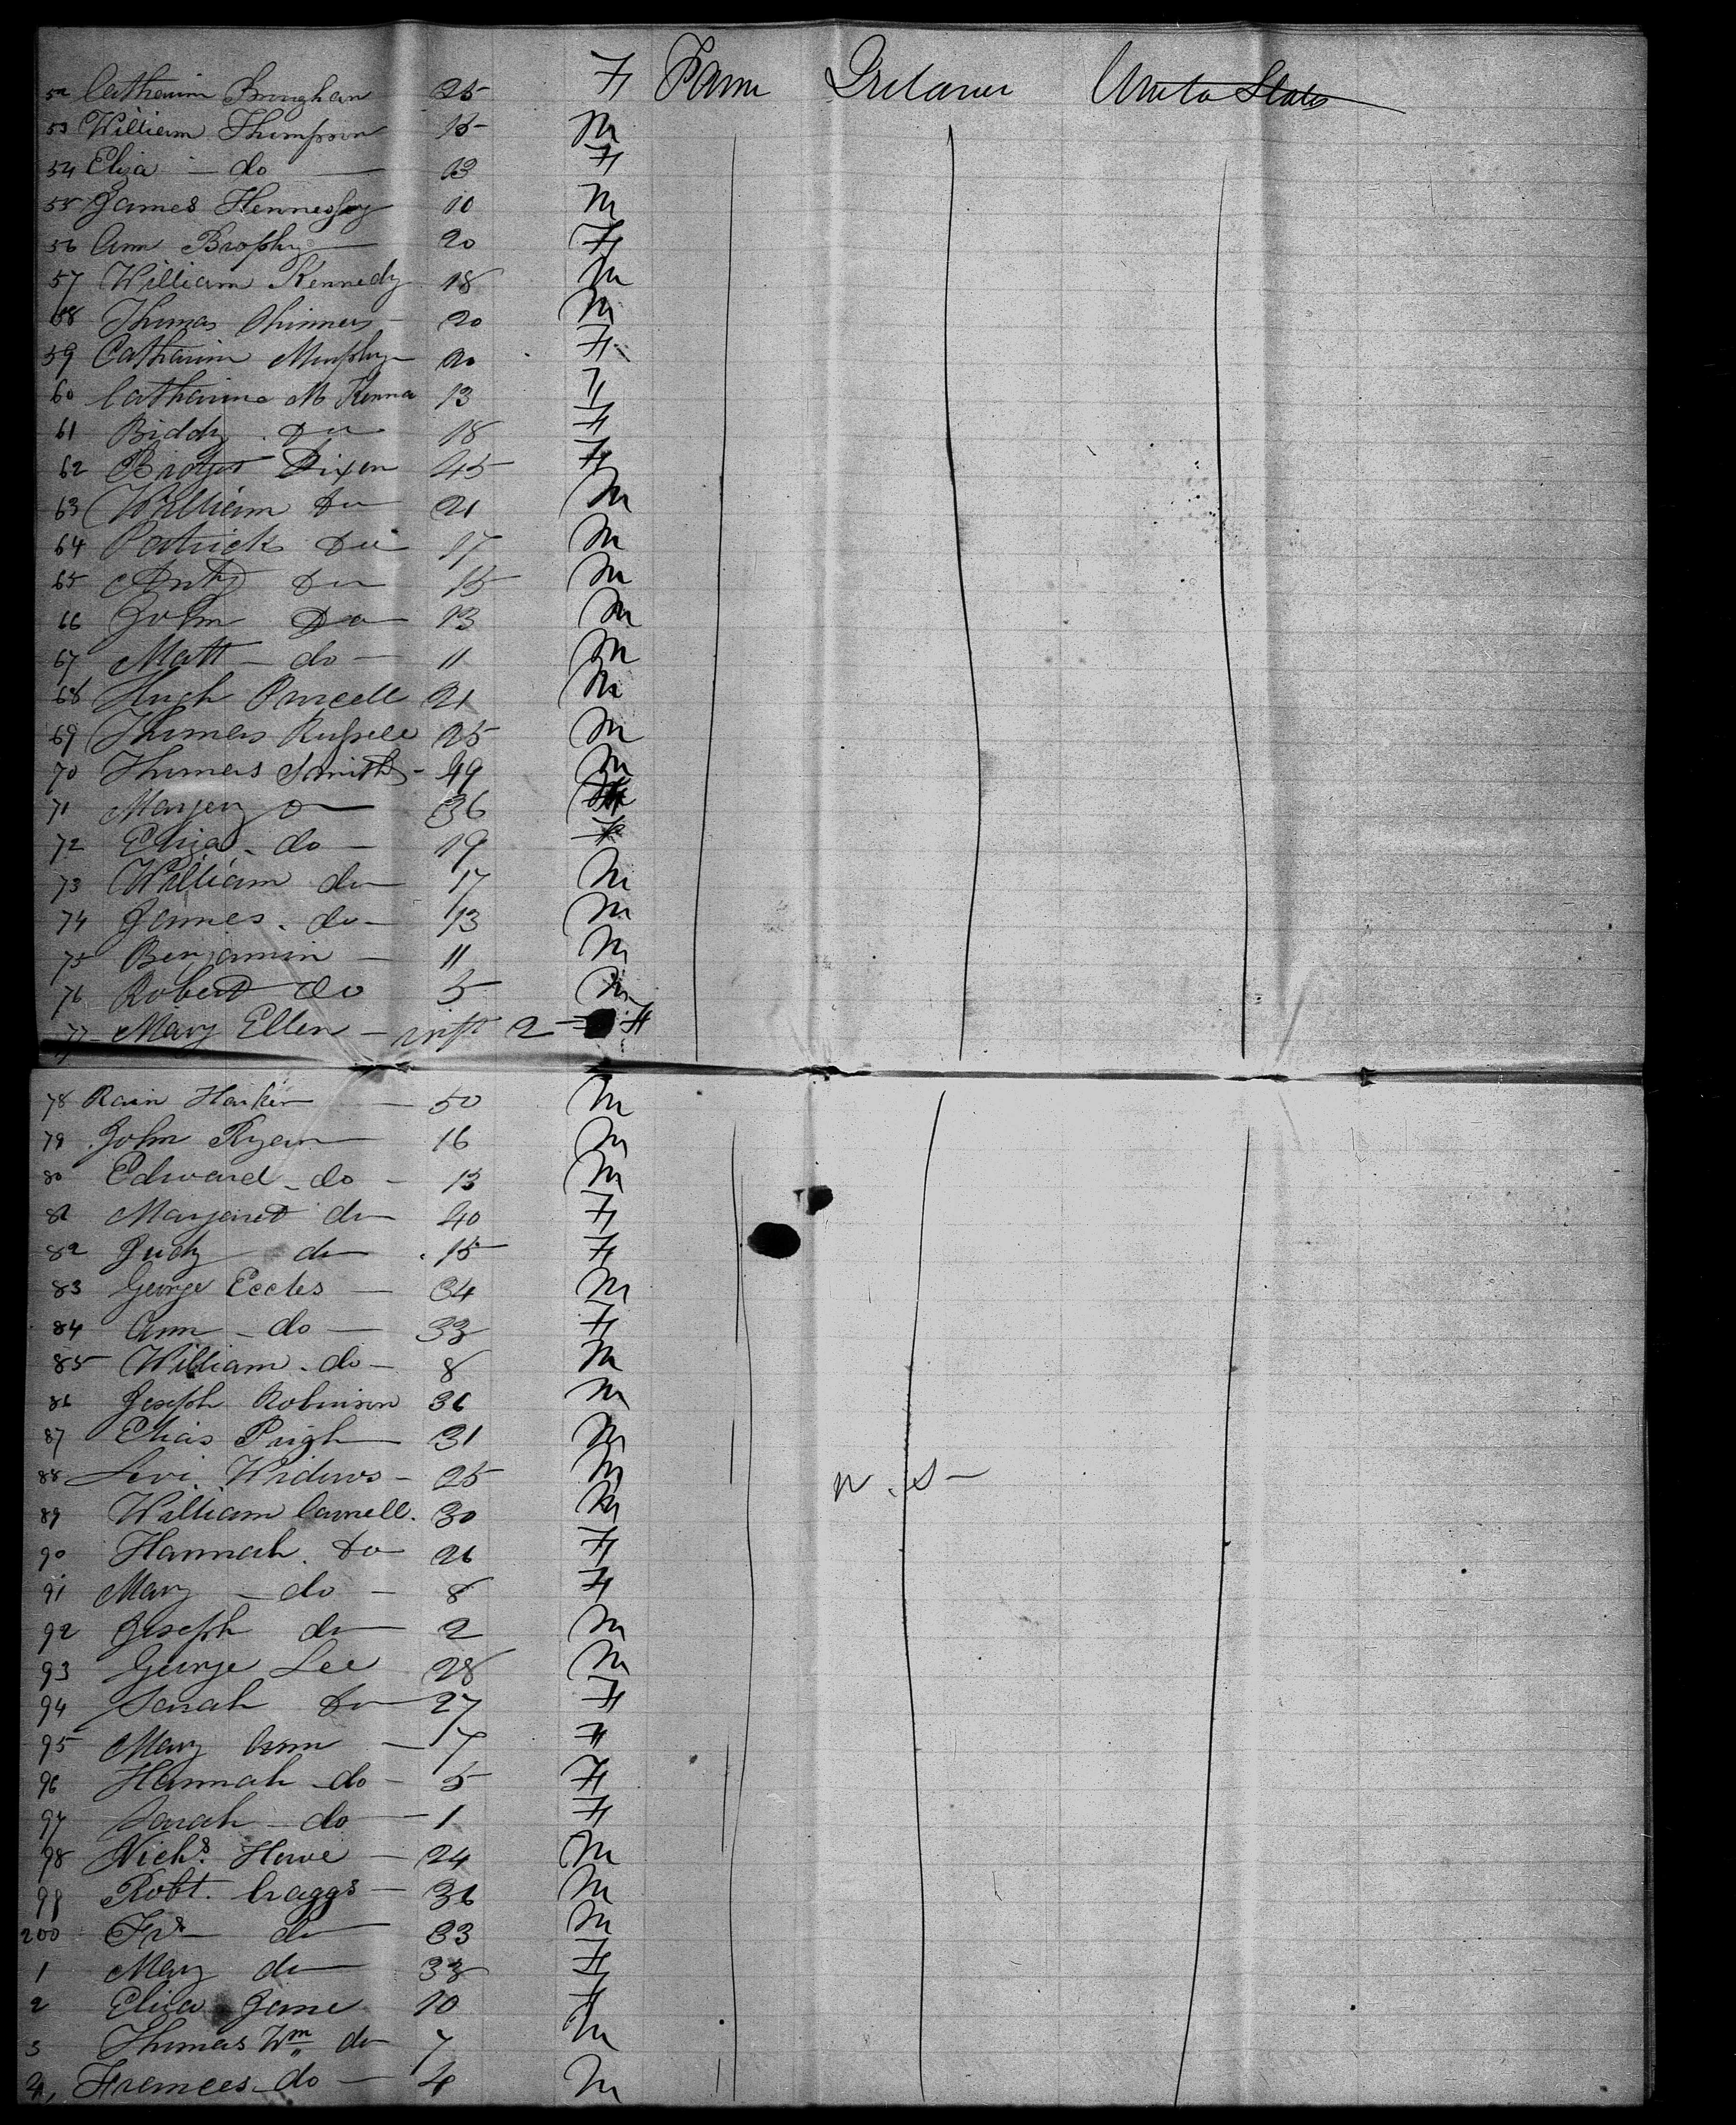 52 Catharine Bringhan 25 F Farm Ireland United States
53 William Thompson 15 M
54 Eliza - do 13 F
55 James Hennessey 10 M
56 Ann Brophy 20 F
57 William Kennedy 18 M
58 Thomas 20 M
59 Catharine Murphy 20 F
60 Catharine Mc Kenna 13 F
61 Biddy Do 18 F
62 Bridget Dixon 45 F
63 William Do 21 M
64 Patrick Do 17 M
65 Anty Do 15 M
66 John Do 13 M
67 Matt - do - 11 M
68 Hugh Purcell 21 M
69 Thomas Russell 25 M
70 Thomas Smith - 49 M
71 Marjery Do 36
72 Eliza - do - 19 F
73 William do 17 M
74 James - do - 13 M
75 Benjamin - 11 M
76 Robert do 5 M
77 Mary Ellen - inft 2 - F
78 Harker - 50 M
79 John Ryan 16 M
80 Edward - do - 13 M
81 Margaret do 40 F
82 Judy do 15 F
83 George Eccles - 34 M
84 Ann - do - 33 F
85 William - do - 8 M
86 Joseph Robinson 36 M
87 Elias Pugh 31 M
88 Levi Widows - 25 M
89 William Carnell 30 M
90 Hannah Do 26 F
91 Mary - do - 8 F
92 Joseph do 2 M
93 George Lee 28 M
94 Sarah Do 27 F
95 Mary Ann - 7 F
96 Hannah - do - 5 F
97 Sarah - do - 1 F
98 Nichs. Howe - 24 M
99 Robt. Craggs - 36 M
200 Frs do 33 M
1 Mary do 33 F
2 Eliza Jane 10 F
3 Thomas Wm do 7 M
4 Frances - do - 4 M